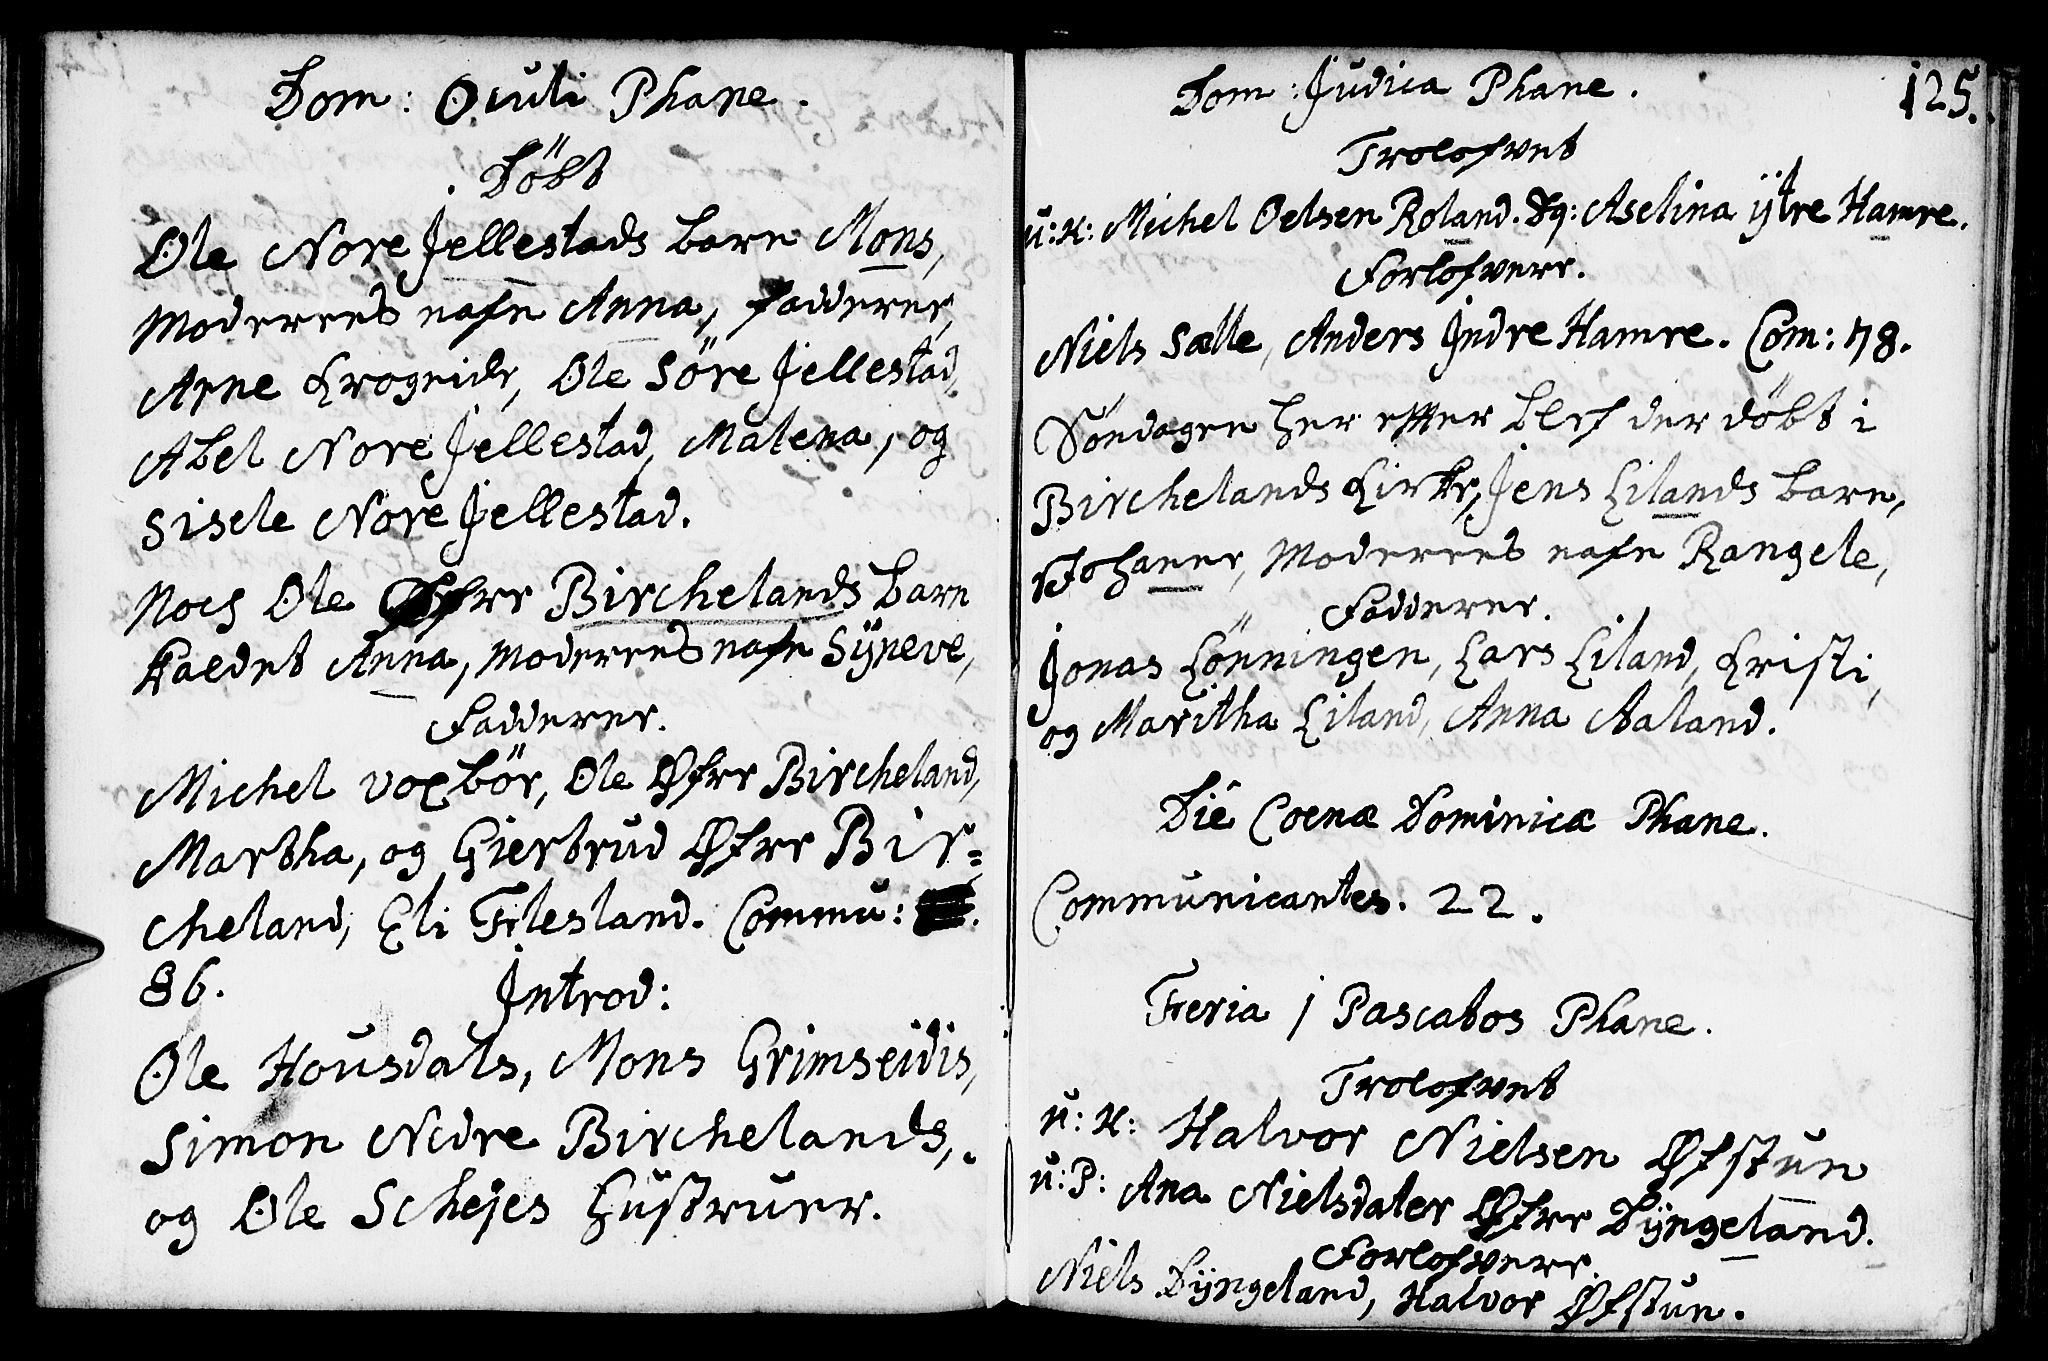 Dom: Oculi Phane.
Döbt
Ole Nore Jellestads barn Mons,
Moderens nafn Anna, fadderer,
Arne Krogneide, Ole Söre Jellestad,
Abel Nore Jellestad, Malena, og
Sisele Nore Jellestad.
Noch Ole Øfre Birchelands barn
kaldet Anna, Moderens nafn Sÿneve,
Fadderer.
Michel Voxbör, Ole Øfre Bircheland,
Martha, og Giertrud Øfre Bir=
cheland, Eli Flesland. Commu:
86. Introd:
Ole Housdals, Mons Grimseidis,
Simon Nedre Birchelands,
og Ole Schejes Hustruer.
125.
Dom: Judica Phane.
Trolofvet
u: K: Michel Oelsen Roland. Pq: Aselina ÿtre Hamre.
Forlofvere.
Niels Sælle, Anders Indre Hamre. Com: 78.
Söndagen her efter blef der döbt i
Birchelands Kirke, Jens Lilands barn,
Johanne, Moderens nafn Rangele,
Fadderer.
Jonas Lönningen, Lars Liland, Kristi,
og Maritha Liland, Anna Aaland.
Die Coenæ Dominicæ Phane.
Communicantes. 22.
Feria 1 Pascatos Phane.
Trolofvet
u: K: Halvor Nielsen Øfstun
u: P: Ana Nielsdater Øfre Dÿngeland.
Forlofvere.
Niels Dÿngeland, Halvor Øfstun.